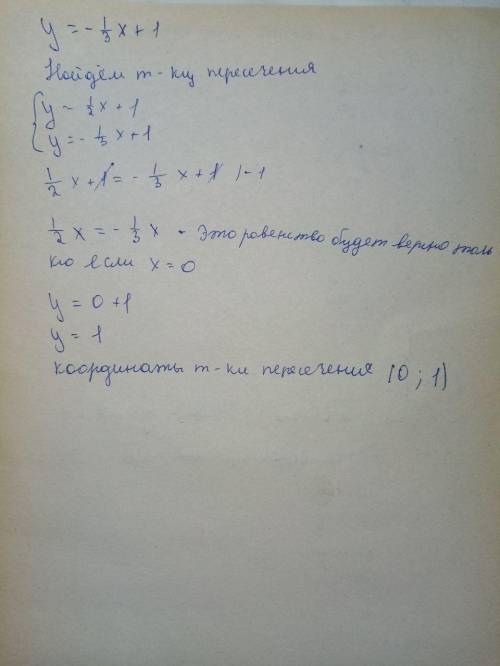 y = - 1/3 x + 1
Найдём т-ку пересечения
{ y = 1/2 x + 1
y = - 1/3 x + 1
1/2 x + 1 = - 1/3 x + 1 | - 1
1/2 x = - 1/3 x - Это равенство будет верно толь
ко если x = 0
y = 0 + 1
y = 1
координаты т-ки пересечения (0 ; 1)